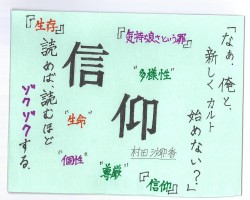 「なぁ、俺と、
新しくカルト
始めない？」
『気持ちよさという罪』
"多様性"
信仰
村田沙耶香
『生存』
"生命"
"個性"
"尊厳"
『信仰』
読めば、読むほど
ゾクゾクする。